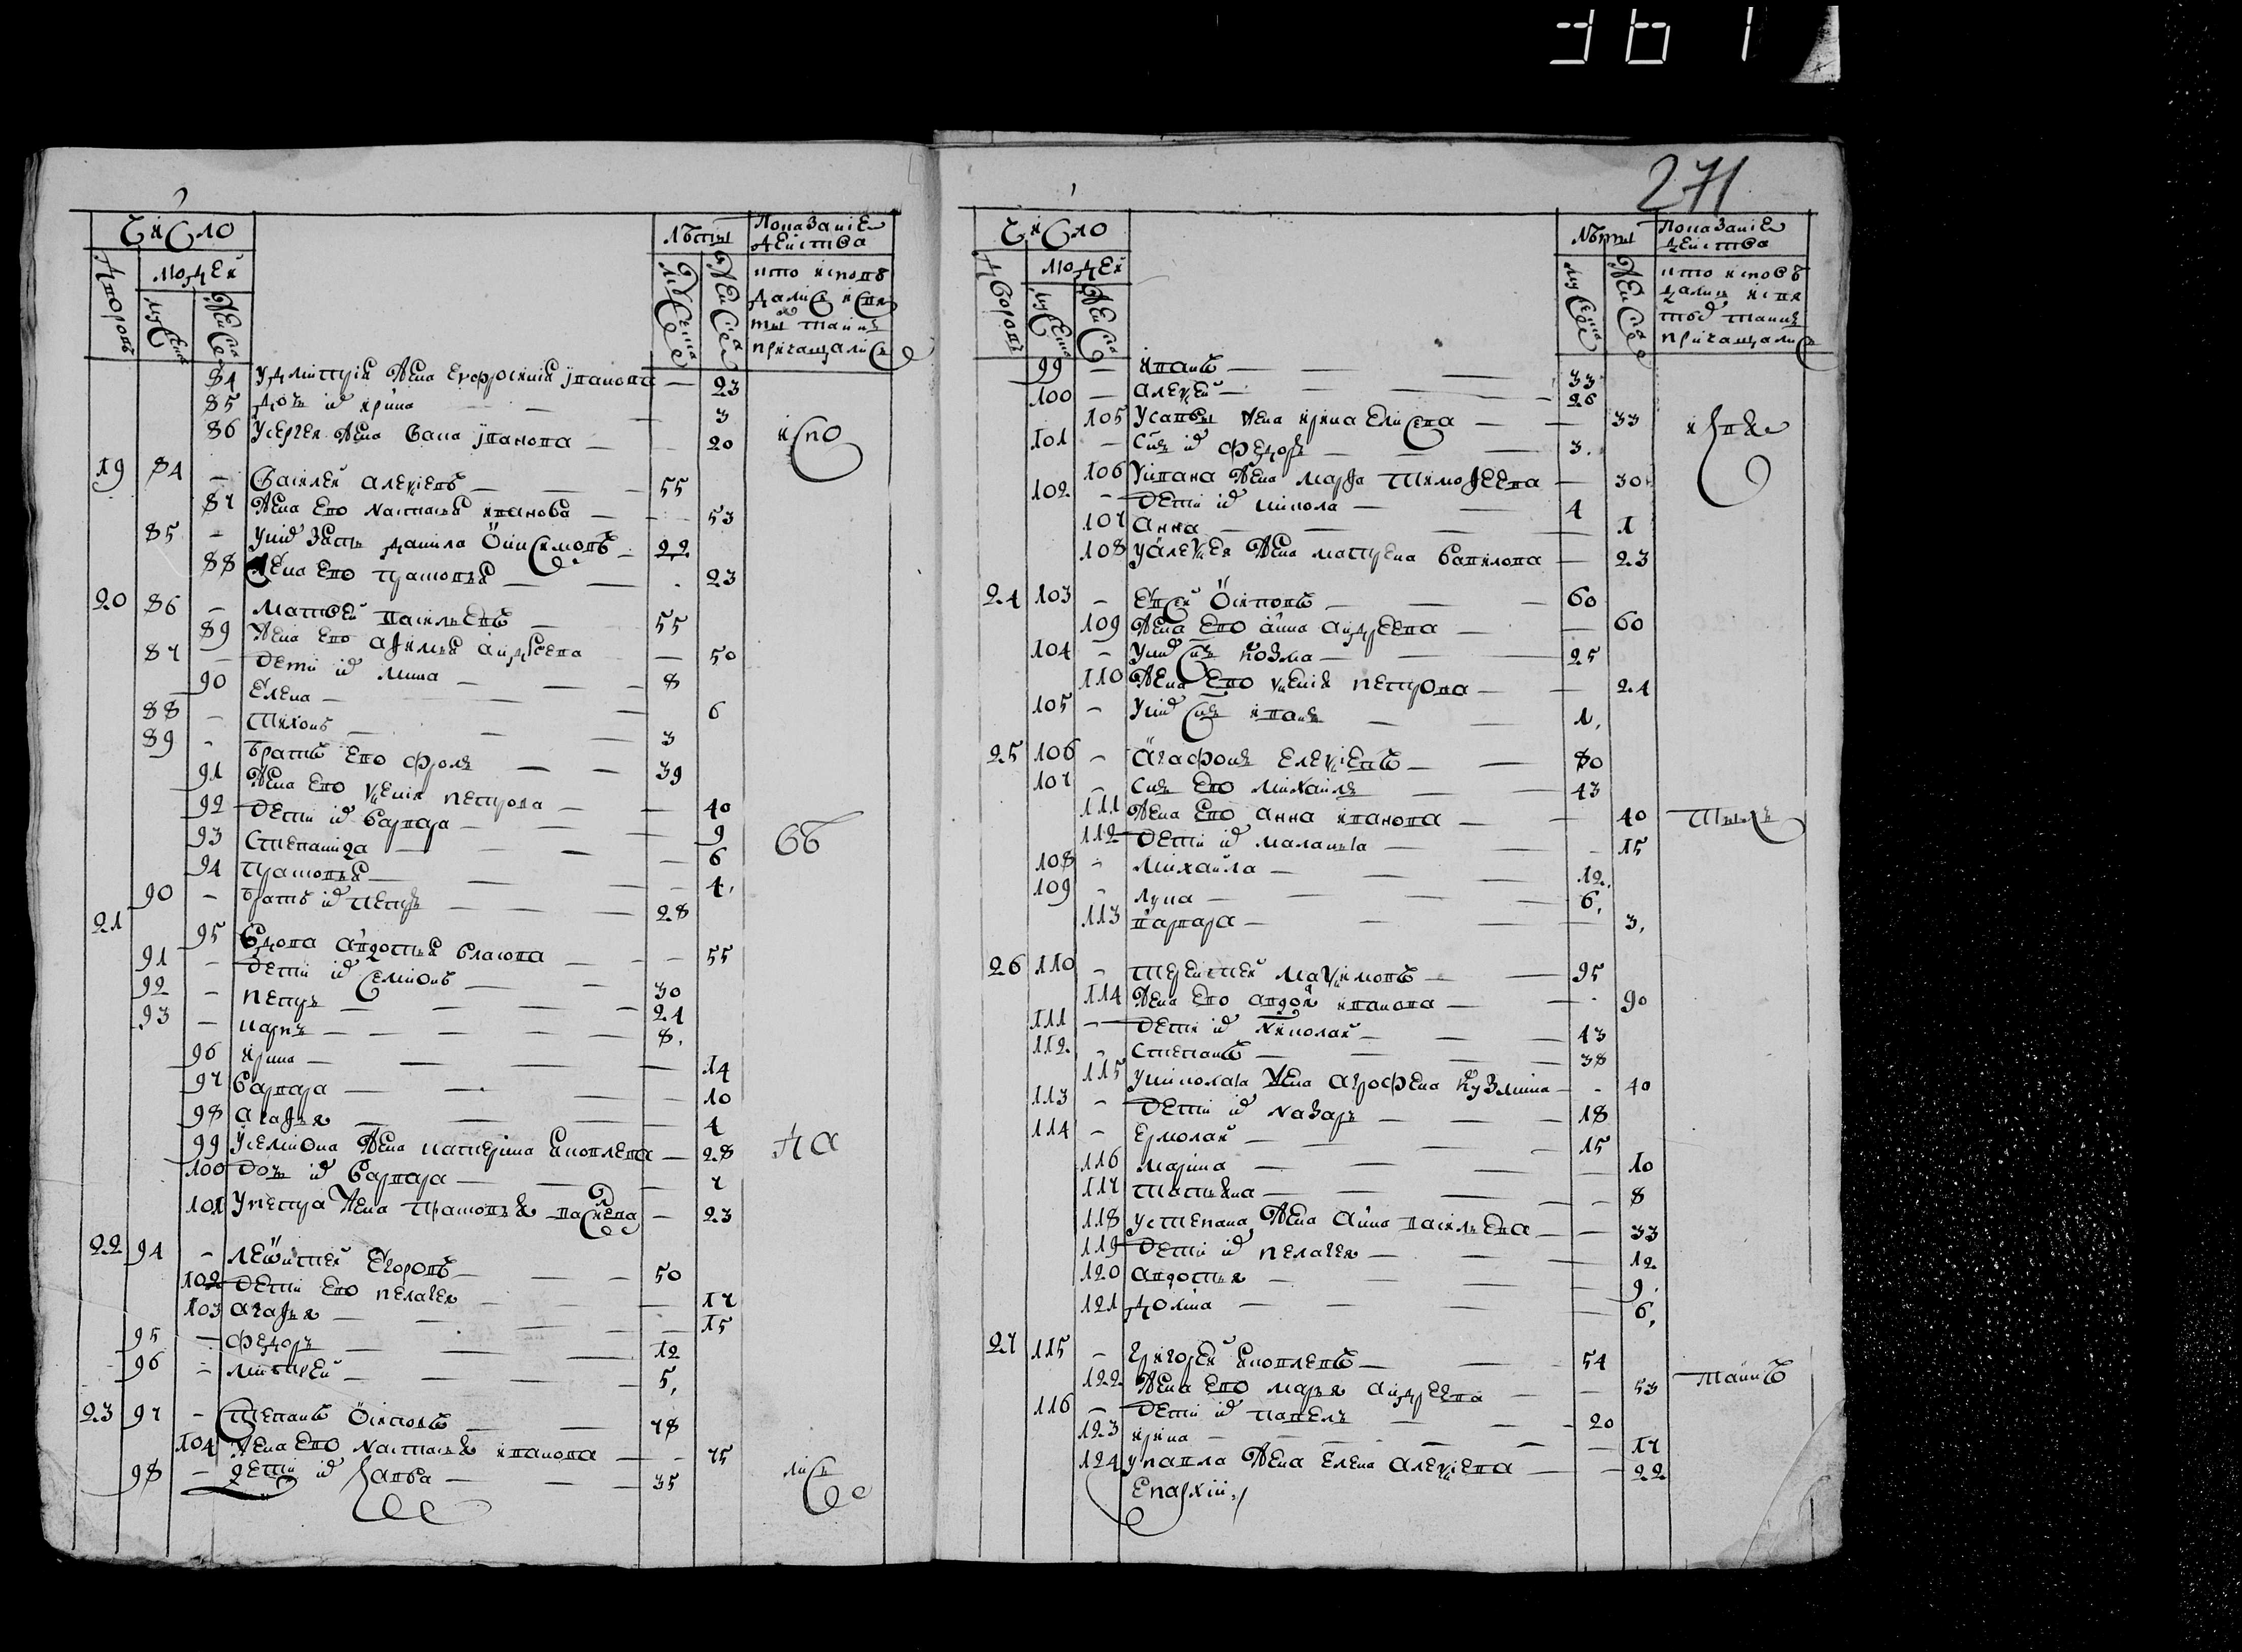 361
271
Число
Лѣта
Показание
действа
Дворовъ
людей
муска
женска
муска
женска
кто исповѣ
дались и свя
тых таинъ
причащались
84 У Дмитрия жена Ефросиния Иванова — 23
85 Дочь их Ирина — 3
86 У Сергея жена Васа Иванова — 20
испо
19 84 — Василей Алексеевъ — 55
87 Жена ево Настасья Иванова — 53
85 — У них зять Данила Онисимовъ — 22
88 Жена ево Прасковья — 23
20 86 — Матвей Васильевъ — 55
89 Жена ево Афимья Андреева — 50
87 — Дети их Мина — 8
90 Елена — 6
88 — Тихонъ — 3
89 — Братъ ево Фролъ — 39
91 Жена ево Ксения Петрова — 40
92 Дети их Варвара — 9
93 Степанида — 6
94 Прасковья — 4
90 — Братъ их Петръ — 28
вѣ
21 95 Вдова Авдотья Власова — 55
91 — Дети их Семионъ — 30
92 — Петръ — 24
93 — Карпъ — 8
96 Ирина — 14
97 Варвара — 10
98 Агафья — 4
99 У Семиона жена Катерина Яковлева — 28
100 Дочь их Варвара — 7
101 У Петра жена Прасковья — 23
да
22 94 — Леонтей Егоровъ — 50
102 Дети ево Пелагея — 17
103 Агафья — 15
95 — Федоръ — 12
96 — — 5
23 97 — Степанъ Осиповъ — 78
104 Жена ево Настасья Иванова — 75
98 — Дети их Савва — 35
лись
Число
Лѣты
Показание
действа
Дворовъ
людей
муска
женска
муска
женска
кто исповѣ
дались и свя
тых таинъ
причащались
99 — Иванъ — 33
100 — Алексей — 26
105 У Саввы жена Ирина Елисеева — 33
101 — Сынъ их Федоръ — 3
106 У Ивана жена Марфа Тимофеева — 30
102 — Дети их Никола — 4
107 Анна — 1
108 У Алексея жена Матрена Вавилова — 23
и свя
24 103 — Евсей Осиповъ — 60
109 Жена ево Анна Андреева — 60
104 — У них сынъ Козма — 25
110 Жена ево Ксения Петрова — 24
105 — У них сынъ Иванъ — 1
25 106 — Агафонъ Елексеевъ — 80
107 — Сынъ ево Михаилъ — 43
111 Жена ево Анна Иванова — 40
112 Дети их Маланья — 15
108 — Михайла — 12
109 — Лука — 6
113 Варвара — 3
тыхъ
26 110 — Терентей Максимовъ — 95
114 Жена ево Авдотья Иванова — 90
111 — Дети их Николай — 43
112 — Степанъ — 38
115 У Николая жена Агрофена Кузмина — 40
113 — Дети их Назаръ — 18
114 — Ермолай — 15
116 Марина — 10
117 Татьяна — 8
118 У Степана жена Анна Васильева — 33
119 Дети их Пелагея — 12
120 Авдотья — 9
121 Домна — 6
27 115 — Григорей Яковлевъ — 54
122 Жена ево Марья Андреева — 53
116 — Дети их Павелъ — 20
123 Ирина — 17
124 У Павла жена Елена Алексеева — 22
таинъ
Епархии